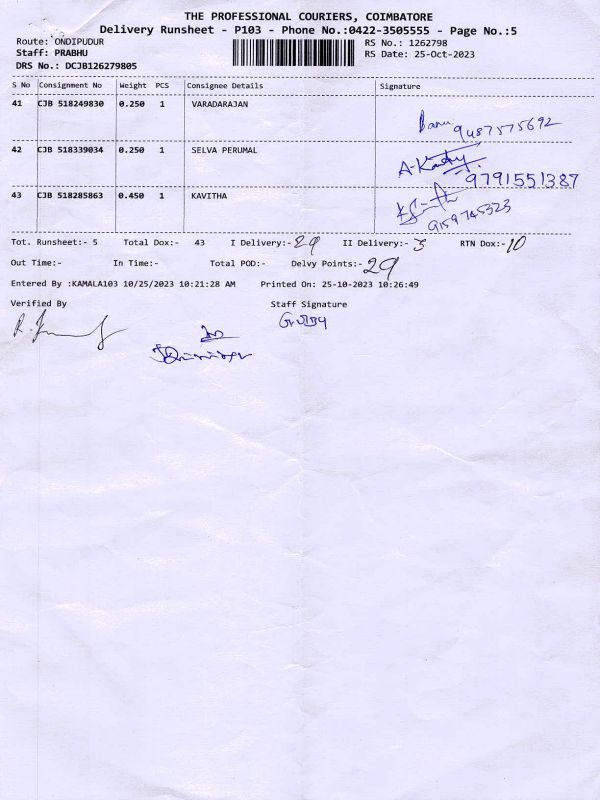 THE PROFESSIONAL COURIERS, COIMBATORE
Delivery Runsheet - P103 - Phone No.:0422-3505555 - Page No.:5
Route: ONDIPUDUR RS No.: 1262798
Staff: PRABHU RS Date: 25-Oct-2023
DRS No.: DCJB126279805
S No Consignment No Weight PCS Consignee Details Signature
41 CJB 518249830 0.250 1 VARADARAJAN
Banu 9487575692
42 CJB 518339034 0.250 1 SELVA PERUMAL
9791551387
43 CJB 518285863 0.450 1 KAVITHA
9159745323
Tot. Runsheet:- 5 Total Dox:- 43 I Delivery:- 29 II Delivery:- 3 RTN Dox:- 10
Out Time:- In Time:- Total POD:- Delvy Points:- 29
Entered By :KAMALA103 10/25/2023 10:21:28 AM Printed On: 25-10-2023 10:26:49
Verified By Staff Signature